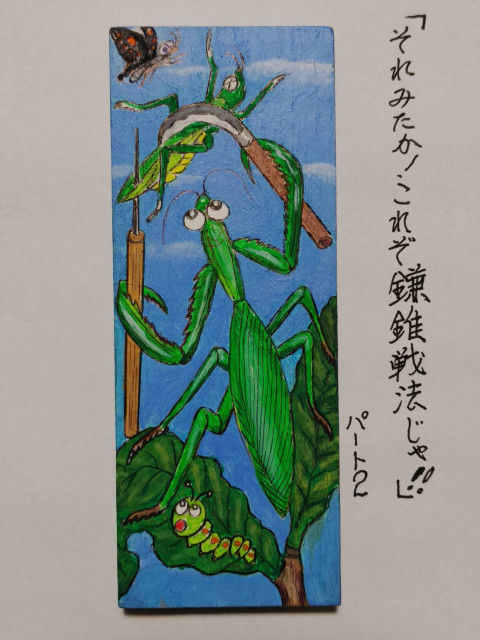 「それみたか!これぞ鎌錐戦法じゃ!!」
パート2